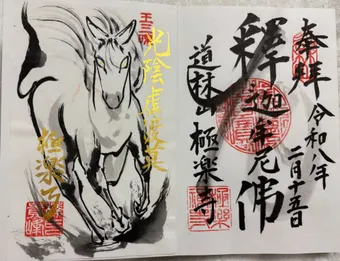 奉拝
令和八年
二月十五日
釋迦牟尼佛
道林山 極楽寺
王三昧
光陰虚
極楽寺